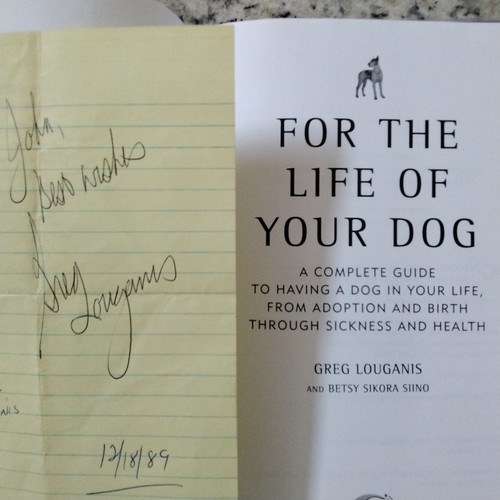 John,
Best wishes
Greg
Louganis
NIS
12/18/89
FOR THE
LIFE OF
YOUR DOG
A COMPLETE GUIDE
TO HAVING A DOG IN YOUR LIFE,
FROM ADOPTION AND BIRTH
THROUGH SICKNESS AND HEALTH
GREG LOUGANIS
AND BETSY SIKORA SIINO